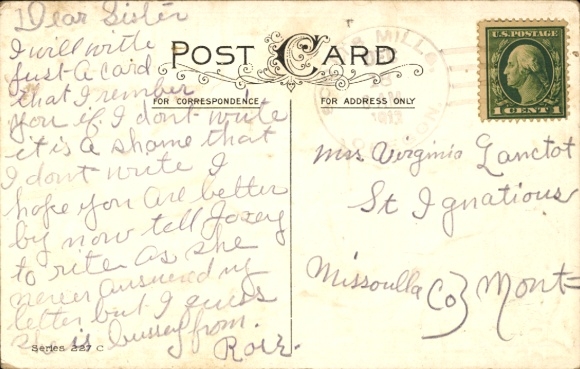 Dear Sister
I will write
just a card
that I rember
you if I dont write
it is a shame that
I dont write I
hope you are better
by now tell
to rite as she
never answered my
letter but I guess
she is bussey from.
Series 227 C
POST CARD
FOR CORRESPONDENCE
FOR ADDRESS ONLY
MILLS
1913
U.S. POSTAGE
1 CENT 1
Mrs. Virginia Lanctot
St Ignatious
Missoulla Co Mont